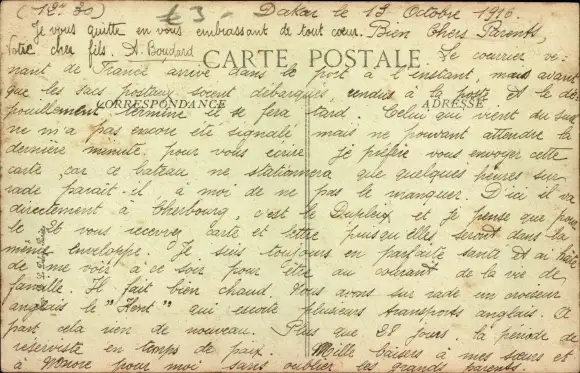 (12h 30) £3- Dakar le 13 Octobre 1916.
Je vous quitte en vous embrassant de tout cœur. Bien Chers Parents,
Votre cher fils. A. Boudard
CARTE POSTALE
Le courrier ve-
nant de France arrive dans le port à l'instant, mais avant
que les sacs postaux soient débarqués, rendus à la poste et le dé-
CORRESPONDANCE
ADRESSE
pouillement terminé il se fera tard. Celui qui vient du sud
ne m'a pas encore été signalé mais ne pouvant attendre la
dernière minute, pour vous écrire je préfère vous envoyer cette
carte car ce bateau ne stationnera que quelques heures sur
rade paraît-il à moi de ne pas le manquer. D'ici il va
directement à Cherbourg, c'est le Dupleix, et je pense que pour
le 26 vous recevrez carte et lettre puisqu'elles seront dans la
même enveloppe. Je suis toujours en parfaite santé et ai hâte
de me voir à ce soir pour être au courant de la vie de
famille. Il fait bien chaud. Nous avons sur rade un croiseur
anglais le "Kent" qui escorte plusieurs transports anglais. A
part cela rien de nouveau. Plus que 28 jours la période de
réserviste en temps de paix. Mille baisers à mes sœurs et
à pour moi sans oublier les grands parents.